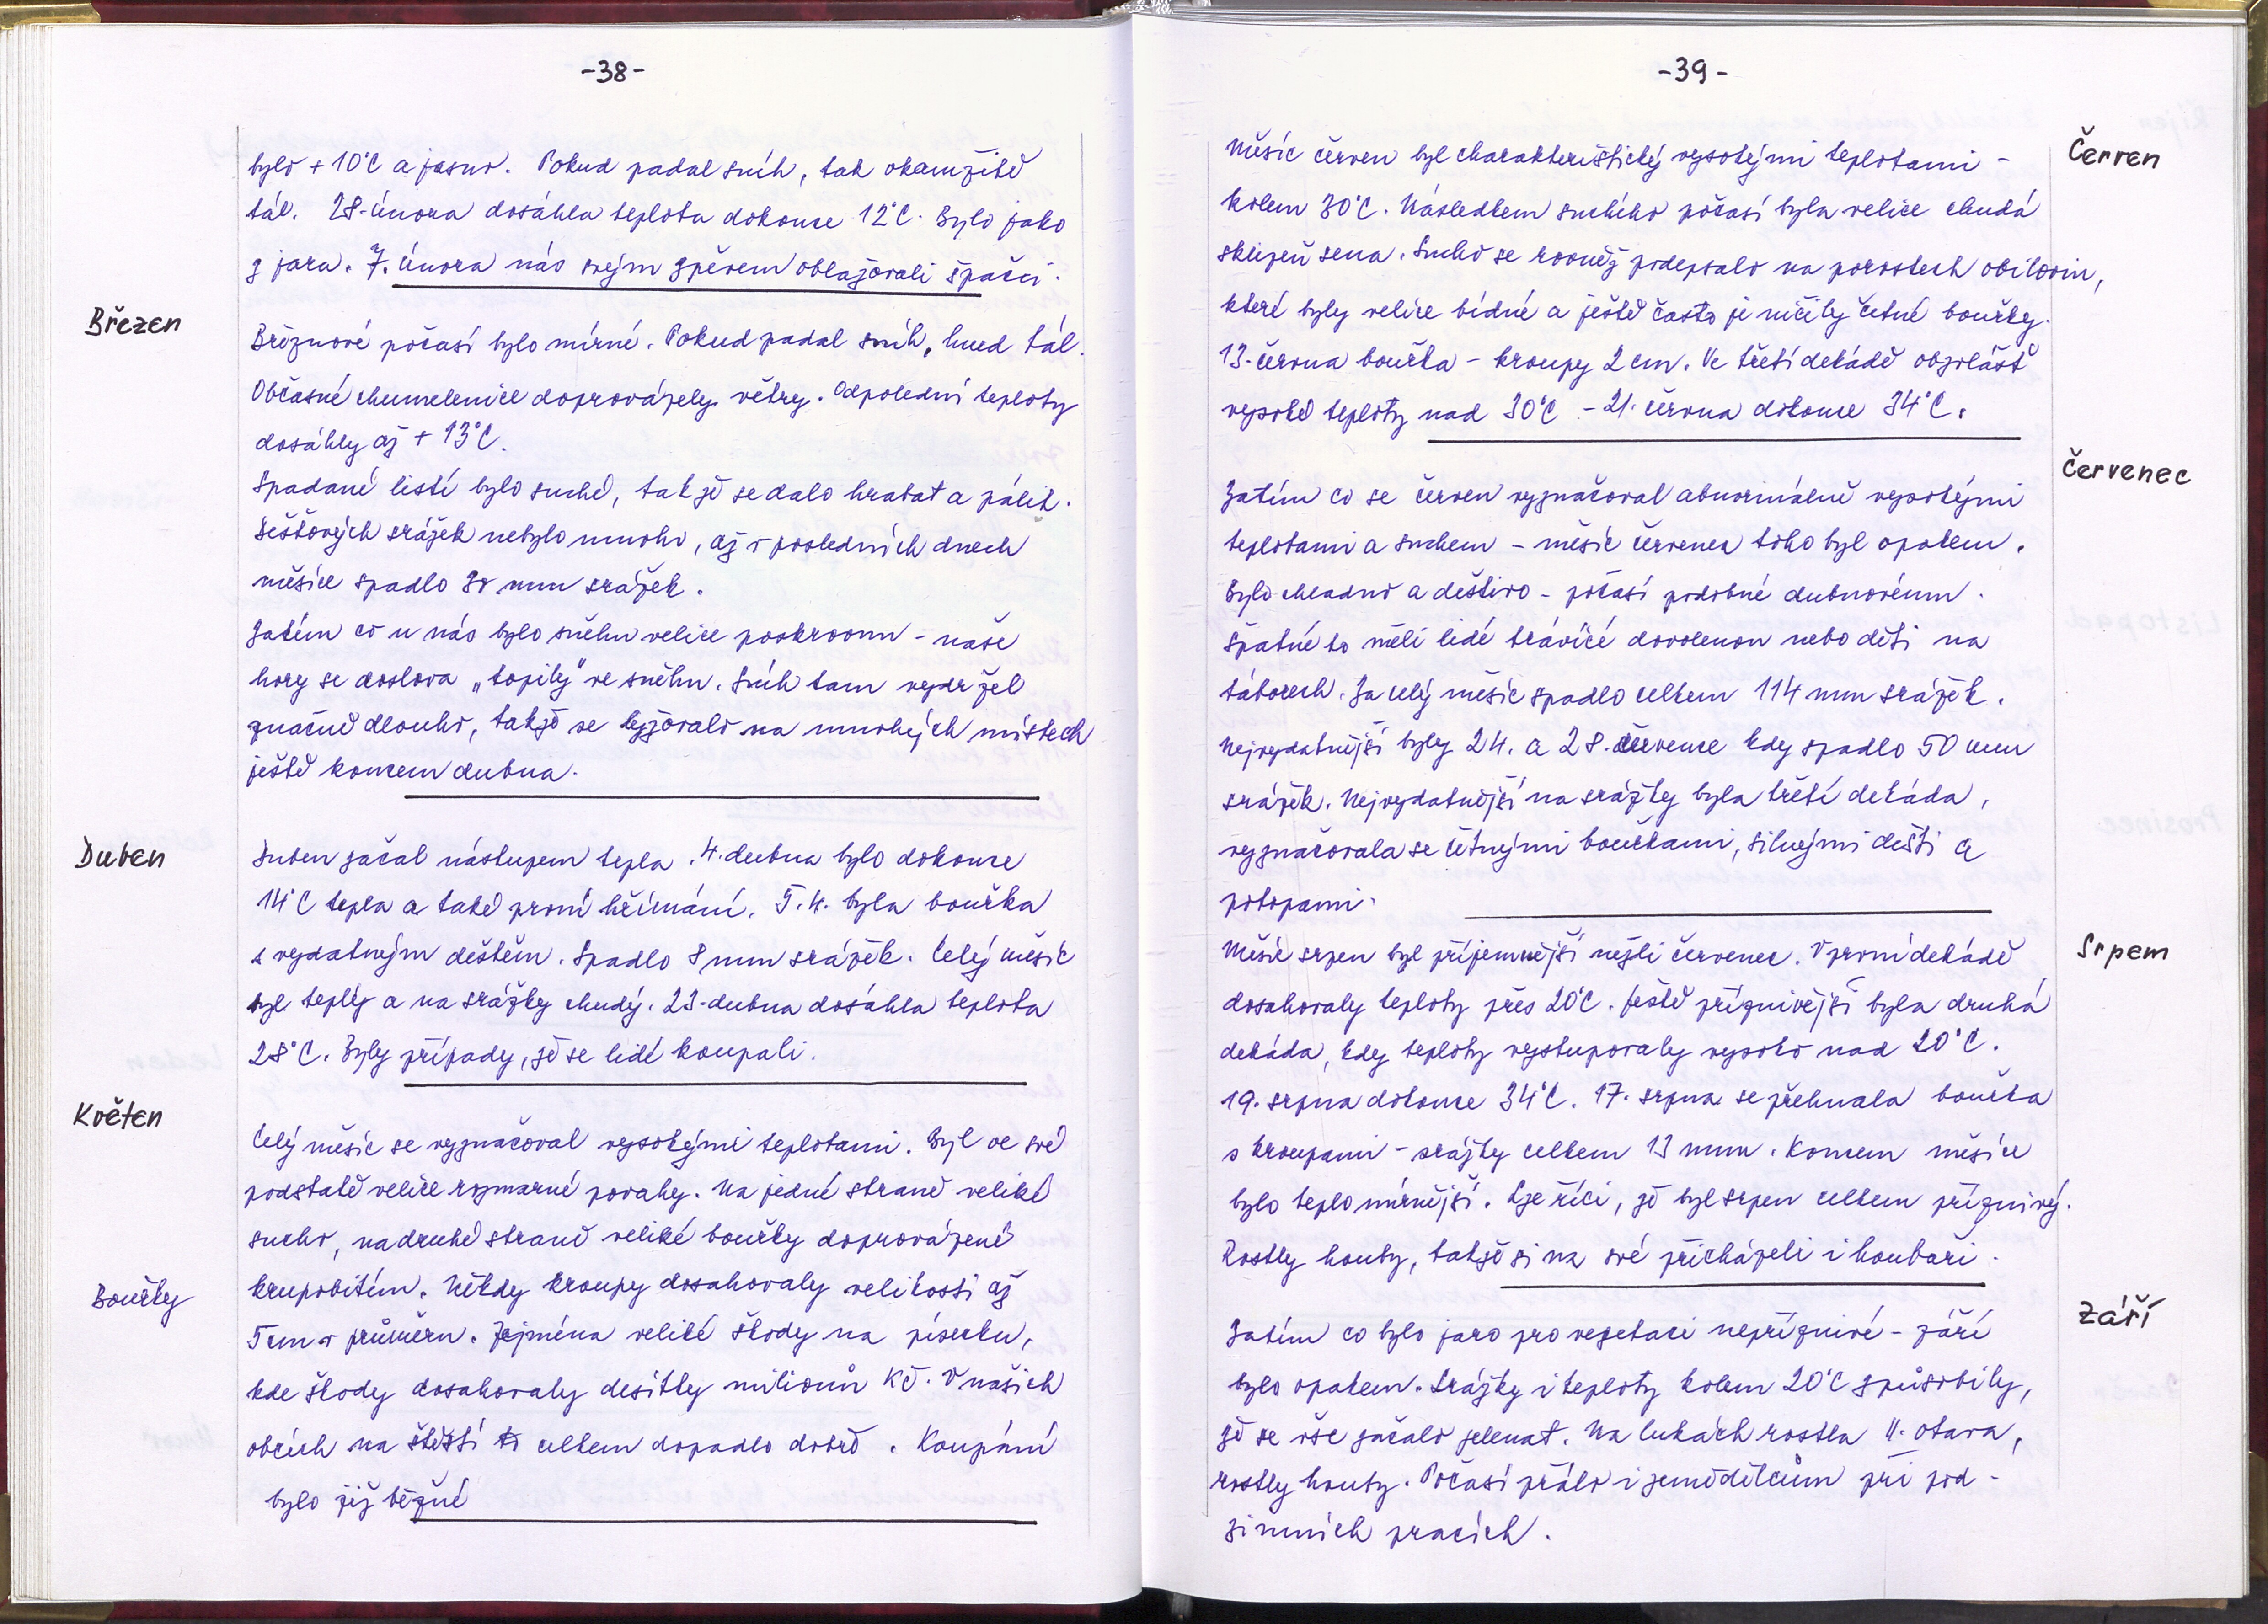 -38-
bylo + 10°C a jasno. Pokud padal sníh, tak okamžitě
tál. 28. února dosáhla teplota dokonce 12°C. Bylo jako
z jara. 7. února nás svým zpěvem oblažovali špačci.
Březen
Březnové počasí bylo mírné. Pokud padal sníh, hned tál.
Občasné chumelenice doprovázely větry. Odpolední teploty
dosáhly až + 13°C.
Spadané listí bylo suché, takže se dalo hrabat a pálit.
Dešťových srážek nebylo mnoho, až v posledních dnech
měsíce spadlo 30 mm srážek.
Zatím co u nás bylo sněhu velice poskrovnu - naše
hory se doslova „topily" ve sněhu. Sníh tam vydržel
značně dlouho, takže se lyžovalo na mnohých místech
ještě koncem dubna.
Duben
Duben začal nástupem tepla. 4. dubna bylo dokonce
14°C tepla a také první hřímání. 5.4. byla bouřka
s vydatným deštěm. Spadlo 8 mm srážek. Celý měsíc
byl teplý a na srážky chudý. 23. dubna dosáhla teplota
28°C. Byly případy, že se lidé koupali.
Květen
Celý měsíc se vyznačoval vysokými teplotami. Byl ve své
podstatě velice rozmarné povahy. Na jedné straně veliké
sucho, na druhé straně veliké bouřky doprovázené
Bouřky
krupobitím. Někdy kroupy dosahovaly velikosti až
5 cm v průměru. Zejména veliké škody na písecku,
kde škody dosahovaly desítky milionů Kč. V našich
obcích na štěstí to celkem dopadlo dobře. Koupání
bylo již běžné
-39-
Měsíc červen byl charakteristický vysokými teplotami -
Červen
kolem 30°C. Následkem suchého počasí byla velice chudá
sklizeň sena. Sucho se rovněž podepsalo na porostech obilovin,
které byly velice bídné a ještě často je ničily četné bouřky.
13. června bouřka - kroupy 2 cm. Ve třetí dekádě obzvlášť
vysoké teploty nad 30°C - 21. června dokonce 34°C.
Červenec
Zatím co se červen vyznačoval abnormálně vysokými
teplotami a suchem - měsíc červenec toho byl opakem.
Bylo chladno a deštivo - počasí podobné dubnovému.
Špatné to měli lidé trávící dovolenou nebo děti na
táborech. Za celý měsíc spadlo celkem 114 mm srážek.
Nejvydatnější byly 24. a 28. července kdy spadlo 50 mm
srážek. Nejvydatnější na srážky byla třetí dekáda,
vyznačovala se četnými bouřkami, silnými dešti a
potopami.
Měsíc srpen byl příjemnější nežli červenec. V první dekádě
Srpen
dosahovaly teploty přes 20°C. Ještě příznivější byla druhá
dekáda, kdy teploty vystupovaly vysoko nad 20°C.
19. srpna dokonce 34°C. 17. srpna se přehnala bouřka
s kroupami - srážky celkem 13 mm. Koncem měsíce
bylo teplo mírnější. Lze říci, že byl srpen celkem příznivý.
Rostly houby, takže si na své přicházeli i houbaři.
Září
Zatím co bylo jaro pro vegetaci nepříznivé - září
bylo opakem. Srážky i teploty kolem 20°C způsobily,
že se vše začalo zelenat. Na lukách rostla II. otava,
rostly houby. Počasí přálo i zemědělcům při pod-
zimních pracích.